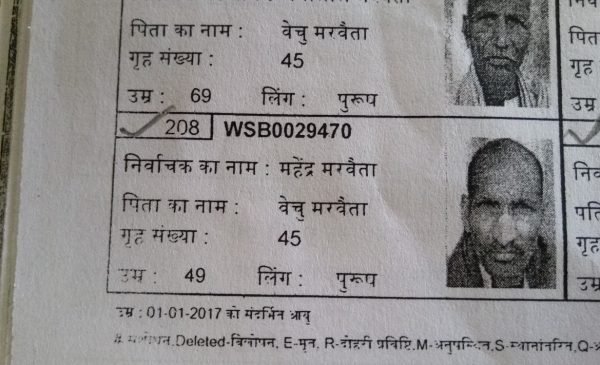 पिता का नाम : वेचु मरवैता
गृह संख्या : 45
उम्र : 69 लिंग : पुरूष
208 WSB0029470
निर्वाचक का नाम : महेंद्र मरवैता
पिता का नाम : वेचु मरवैता
गृह संख्या : 45
उम्र : 49 लिंग : पुरूष
उम्र : 01-01-2017 को संदर्भित आयु
Deleted-विलोपन, E-मृत, R-दोहरी प्रविष्टि, M-अनुपस्थित, S-स्थानांतरित, Q-अ